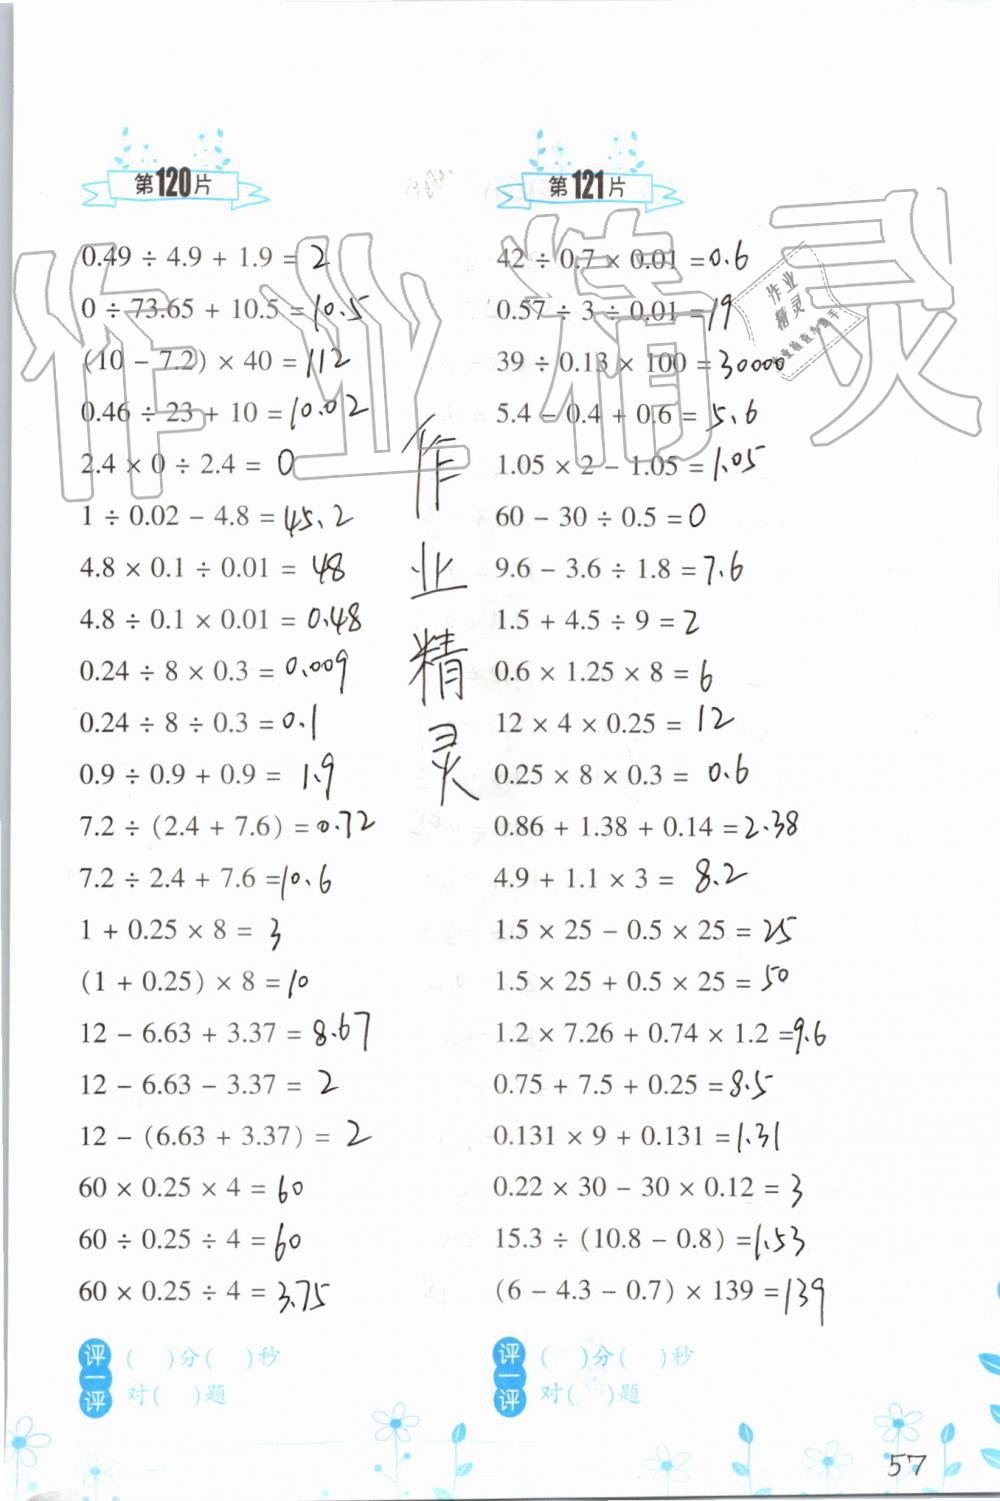 第120片
0.49 ÷ 4.9 + 1.9 = 2
0 ÷ 73.65 + 10.5 = 10.5
(10 − 7.2) × 40 = 112
0.46 ÷ 23 + 10 = 10.02
2.4 × 0 ÷ 2.4 = 0
1 ÷ 0.02 − 4.8 = 45.2
4.8 × 0.1 ÷ 0.01 = 48
4.8 ÷ 0.1 × 0.01 = 0.48
0.24 ÷ 8 × 0.3 = 0.009
0.24 ÷ 8 ÷ 0.3 = 0.1
0.9 ÷ 0.9 + 0.9 = 1.9
7.2 ÷ (2.4 + 7.6) = 0.72
7.2 ÷ 2.4 + 7.6 = 10.6
1 + 0.25 × 8 = 3
(1 + 0.25) × 8 = 10
12 − 6.63 + 3.37 = 8.67
12 − 6.63 − 3.37 = 2
12 − (6.63 + 3.37) = 2
60 × 0.25 × 4 = 60
60 ÷ 0.25 ÷ 4 = 60
60 × 0.25 ÷ 4 = 3.75
评一评
( )分( )秒
对( )题
作业精灵
第121片
42 ÷ 0.7 × 0.01 = 0.6
0.57 ÷ 3 ÷ 0.01 = 19
39 ÷ 0.13 × 100 = 30000
5.4 − 0.4 + 0.6 = 5.6
1.05 × 2 − 1.05 = 1.05
60 − 30 ÷ 0.5 = 0
9.6 − 3.6 ÷ 1.8 = 7.6
1.5 + 4.5 ÷ 9 = 2
0.6 × 1.25 × 8 = 6
12 × 4 × 0.25 = 12
0.25 × 8 × 0.3 = 0.6
0.86 + 1.38 + 0.14 = 2.38
4.9 + 1.1 × 3 = 8.2
1.5 × 25 − 0.5 × 25 = 25
1.5 × 25 + 0.5 × 25 = 50
1.2 × 7.26 + 0.74 × 1.2 = 9.6
0.75 + 7.5 + 0.25 = 8.5
0.131 × 9 + 0.131 = 1.31
0.22 × 30 − 30 × 0.12 = 3
15.3 ÷ (10.8 − 0.8) = 1.53
(6 − 4.3 − 0.7) × 139 = 139
评一评
( )分( )秒
对( )题
作业精灵
作业
精灵
57